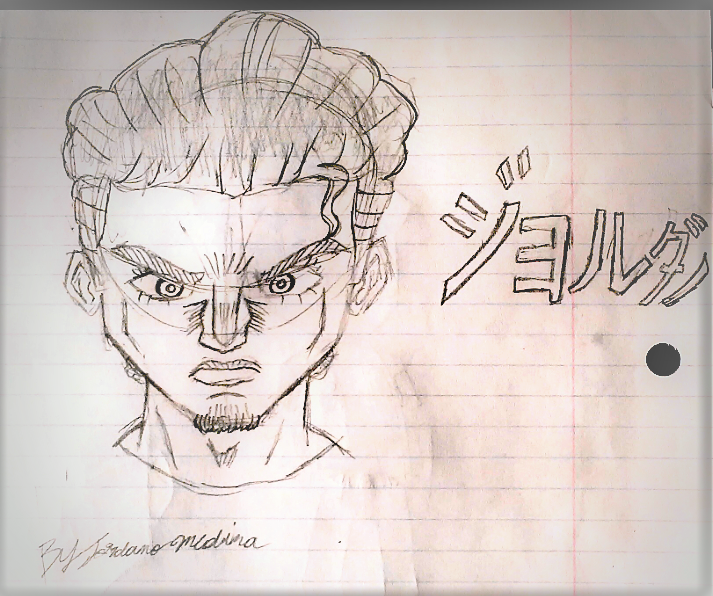 ジョルダ
By Jordano Medina